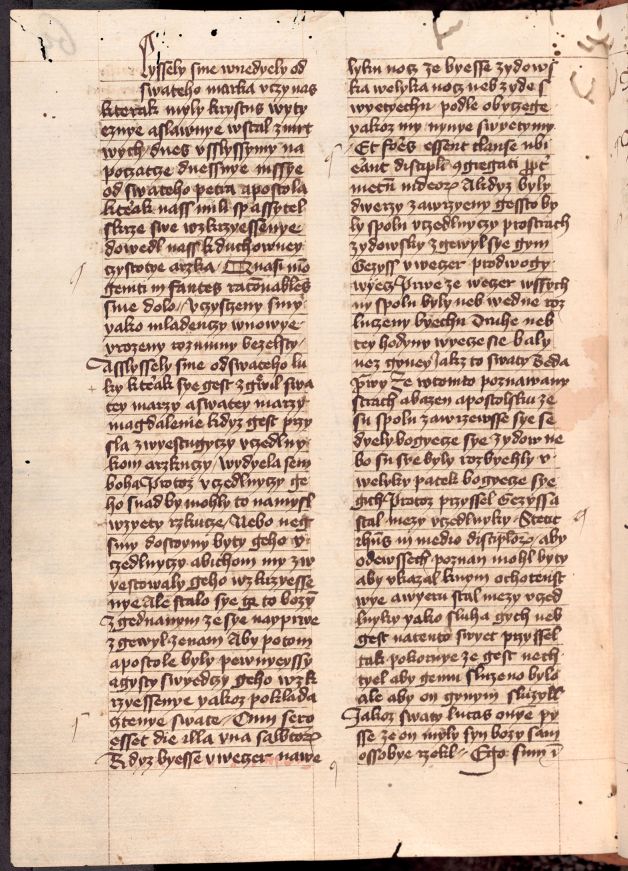 lyssely sme wnedyely od
swateho marka vczynas
kterak myly krystus wyty
eznye aslawnye wstal zmrt
wych dnes vsslyssymy na
poczatcze dnessnye mssye
od swateho petra apostola
kterak nass mili spassytel
skrze swe wzkrzyessenye
dowedl nass kduchowney
czystotye arzka Quasi mo
geniti in fantes racionabiles
sine dolo vczysczeny smy
yako mladenczy wnowye
vrozeny rozumny bezelsty
Asslyssely sme odswateho lu
ky kterak sye gest zgewil swa
tey marzy aswatey marzy
magdalenie kdyz gest przy
sla zwyestugyczy vczedlny
kom arzkuczy wydyela sem
boha Protoz vczedlnyczy ge
ho snad by mohly to namysl
wzyety rzkucze Nebo neg
smy dostoyni byty geho v
czedlnyczy abichom my zw
yestowaly geho wzkrzyesse
nye Ale stalo sye ge to bozym
zgednanym ze sye nayprwe
zgewyl zenam Aby potom
apostole byly pewnyeyssy
agysty swyedczy geho wzk
rzyessenye yakoz poklada
cztenye swate Cum sero
esset die illa vna sabbatorum
Kdyz byesse vweczer nawe
lyku nocz ze byesse zydows
ka welyka nocz neb zyde s
wyetyechu podle obyczege
yakoz my nynye swyetymy
Et fores essent clause ubi
erant discipli congregati propter
metum iudeorum Akdyz byly
dwerzy zawrzyeny gessto by
ly spolu vczedlnyczy prostrach
zydowsky zgewyl sye gym
Gezyss vweczer prodwogy
wyecz Prwe ze weczer wssych
ny spolu byly neb wedne roz
luczeny byechu Druhe neb
tey hodyny wyecze sie baly
nez gyney Jakz to swaty Beda
prwy Ze wtomto poznawamy
strach abazen apostolsku ze
su spolu zawrzewsse sye se
dyely bogyecze sye zydow ne
bo su sye byly rozbyehly v
welyky patek bogyecze sye
gich Protoz przyssel Gezyss a
stal mezy vczedlnyky Stetit
ihesus in medio discipulorum aby
odewssech poznan mohl byty
aby vkazal knym ochotenst
wye awyeru stal mezy vczed
lnyky yako sluha gych neb
gest natento swyet przyssel
tak pokornye ze gest nech
tyel aby gemu sluzeno bylo
ale aby on gynym sluzyl
Jakoz swaty lucas onyem py
sse ze on myly syn bozy sam
ossobye rzekl Ego sum in